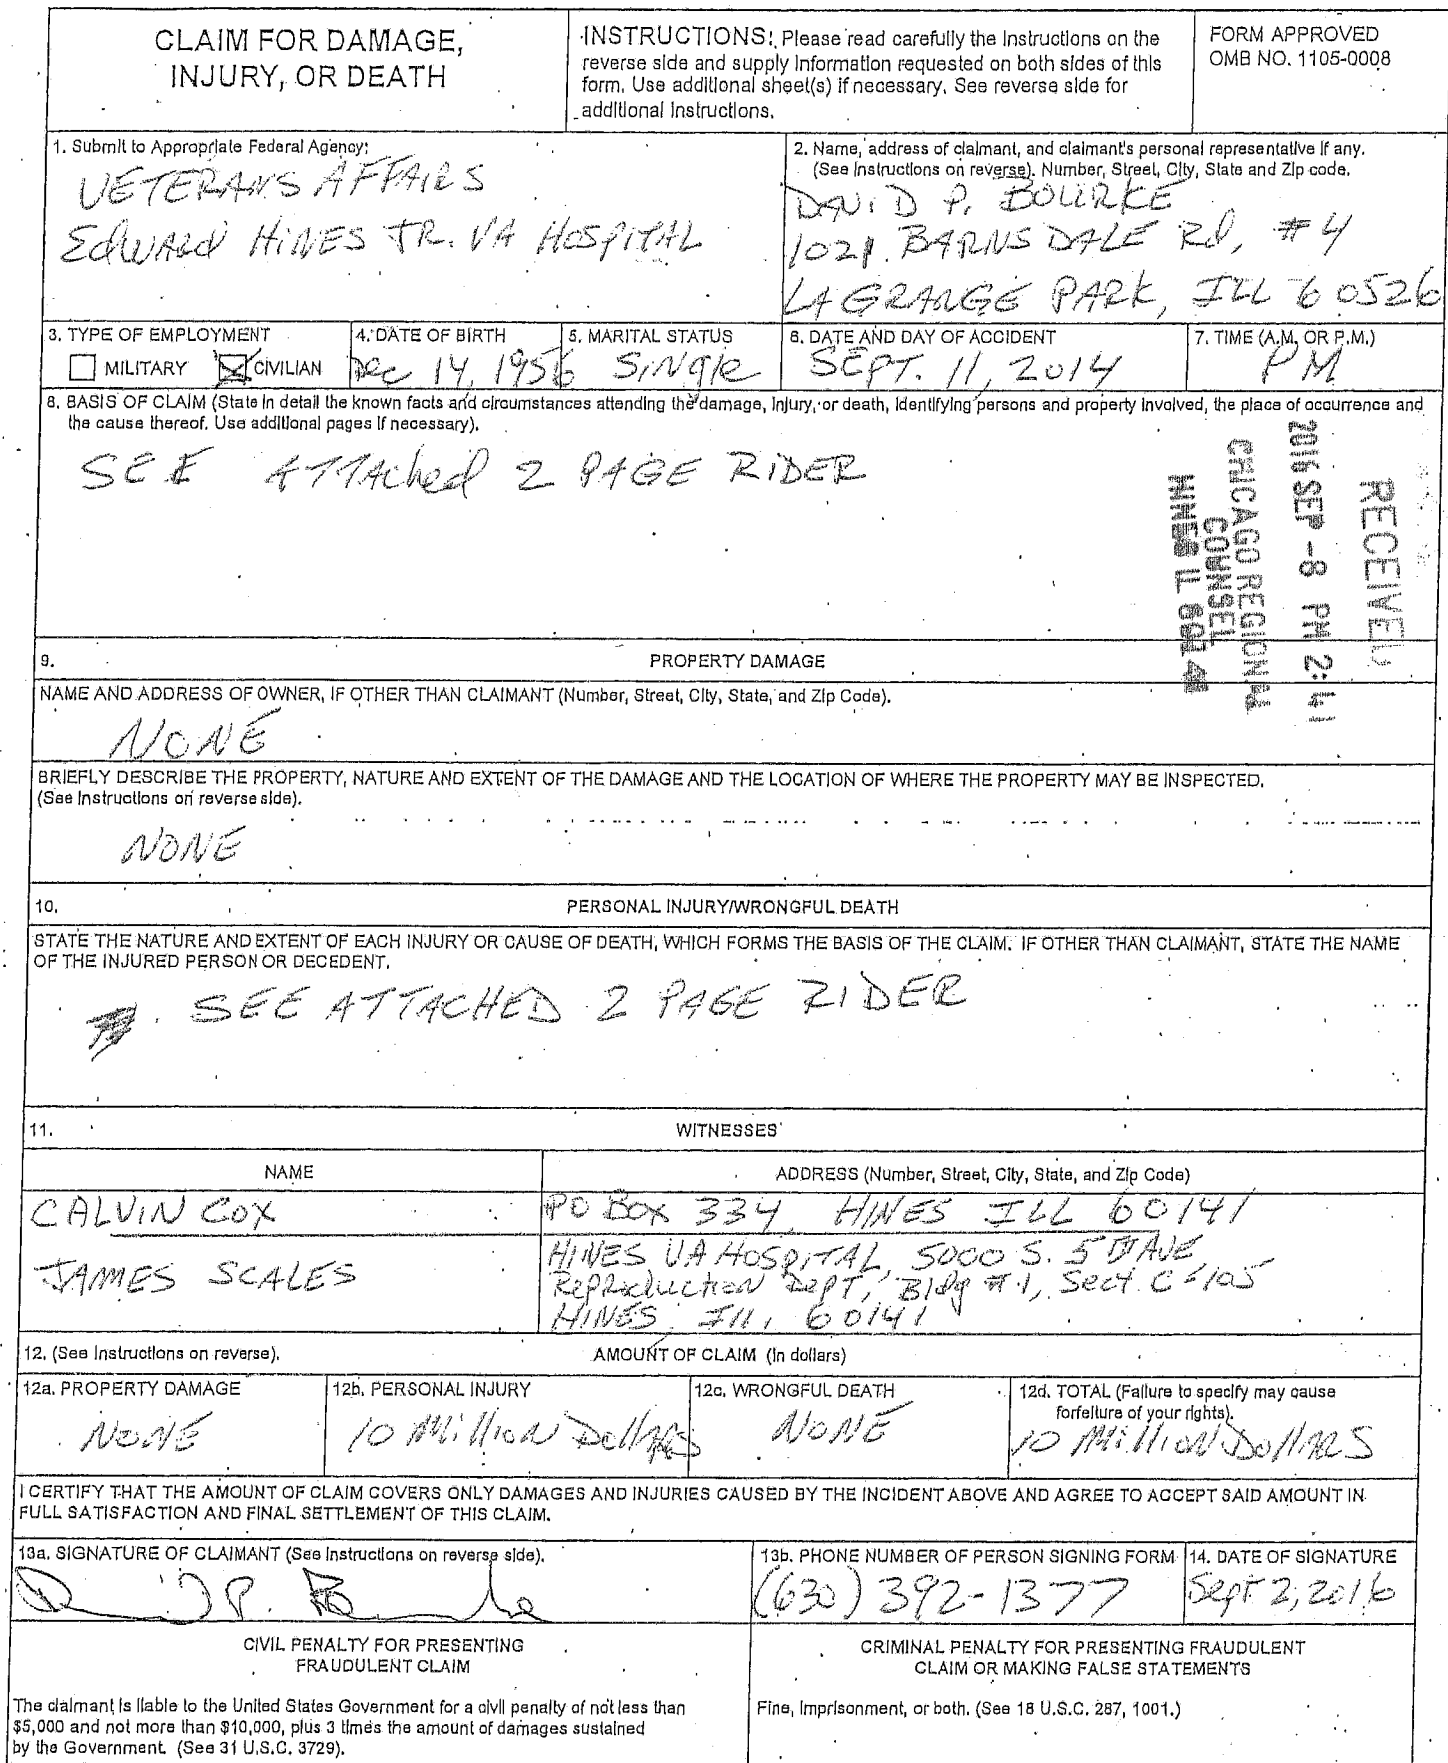 CLAIM FOR DAMAGE,
INJURY, OR DEATH
INSTRUCTIONS: Please read carefully the instructions on the
reverse side and supply information requested on both sides of this
form. Use additional sheet(s) if necessary. See reverse side for
additional instructions.
FORM APPROVED
OMB NO. 1105-0008
1. Submit to Appropriate Federal Agency:
VETERANS AFFAIRS
Edward HINES JR. VA HOSPITAL
2. Name, address of claimant, and claimant's personal representative if any.
(See instructions on reverse). Number, Street, City, State and Zip code.
DAVID P. BOURKE
1021 BARNSDALE Rd, #4
LAGRANGE PARK, ILL 60526
3. TYPE OF EMPLOYMENT
MILITARY CIVILIAN
4. DATE OF BIRTH
Dec 14, 1956
5. MARITAL STATUS
Single
6. DATE AND DAY OF ACCIDENT
SEPT. 11, 2014
7. TIME (A.M. OR P.M.)
PM
8. BASIS OF CLAIM (State in detail the known facts and circumstances attending the damage, injury, or death, identifying persons and property involved, the place of occurrence and
the cause thereof. Use additional pages if necessary).
SEE ATTAched 2 PAGE RIDER
RECEIVED
2016 SEP -8 PM 2:41
CHICAGO REGIONAL
COUNSEL
HINES IL 60141
9. PROPERTY DAMAGE
NAME AND ADDRESS OF OWNER, IF OTHER THAN CLAIMANT (Number, Street, City, State, and Zip Code).
NONE
BRIEFLY DESCRIBE THE PROPERTY, NATURE AND EXTENT OF THE DAMAGE AND THE LOCATION OF WHERE THE PROPERTY MAY BE INSPECTED.
(See Instructions on reverse side).
NONE
10. PERSONAL INJURY/WRONGFUL DEATH
STATE THE NATURE AND EXTENT OF EACH INJURY OR CAUSE OF DEATH, WHICH FORMS THE BASIS OF THE CLAIM. IF OTHER THAN CLAIMANT, STATE THE NAME
OF THE INJURED PERSON OR DECEDENT.
SEE ATTACHED 2 PAGE RIDER
11. WITNESSES
NAME
ADDRESS (Number, Street, City, State, and Zip Code)
CALVIN COX
PO BOX 334, HINES ILL 60141
JAMES SCALES
HINES VA HOSPITAL, 5000 S. 5TH AVE
Reproduction Dept, Bldg #1, Sect. C-105
HINES, Ill, 60141
12. (See Instructions on reverse). AMOUNT OF CLAIM (In dollars)
12a. PROPERTY DAMAGE
NONE
12b. PERSONAL INJURY
10 Million DollARS
12c. WRONGFUL DEATH
NONE
12d. TOTAL (Failure to specify may cause
forfeiture of your rights).
10 Million DollARS
I CERTIFY THAT THE AMOUNT OF CLAIM COVERS ONLY DAMAGES AND INJURIES CAUSED BY THE INCIDENT ABOVE AND AGREE TO ACCEPT SAID AMOUNT IN
FULL SATISFACTION AND FINAL SETTLEMENT OF THIS CLAIM.
13a. SIGNATURE OF CLAIMANT (See Instructions on reverse side).
13b. PHONE NUMBER OF PERSON SIGNING FORM
(630) 392-1377
14. DATE OF SIGNATURE
Sept 2, 2016
CIVIL PENALTY FOR PRESENTING
FRAUDULENT CLAIM
The claimant is liable to the United States Government for a civil penalty of not less than
$5,000 and not more than $10,000, plus 3 times the amount of damages sustained
by the Government. (See 31 U.S.C. 3729).
CRIMINAL PENALTY FOR PRESENTING FRAUDULENT
CLAIM OR MAKING FALSE STATEMENTS
Fine, imprisonment, or both. (See 18 U.S.C. 287, 1001.)